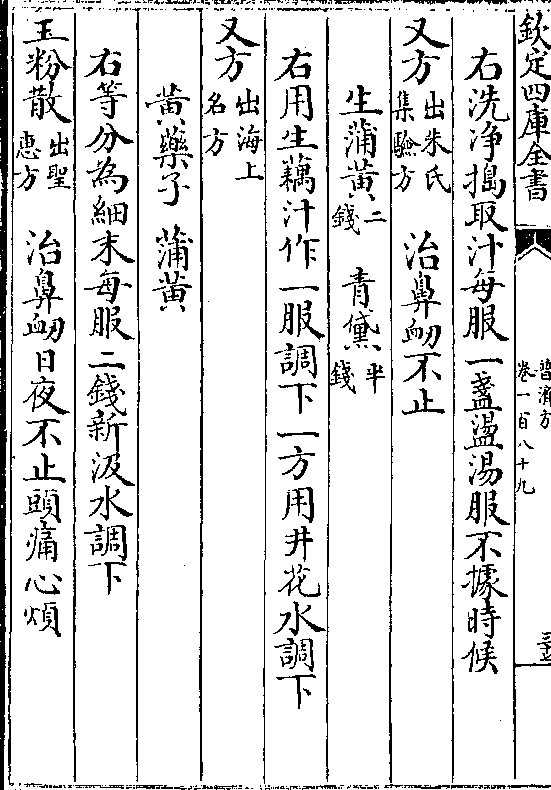 欽定四庫全書
普濟方
卷一百八十九
右洗浄搗取汁每服一盞盪湯服不據時候
又方出朱氏集驗方 治鼻衂不止
生蒲黄二錢 青黛半錢
右用生藕汁作一服調下一方用井花水調下
又方出海上名方
黄藥子 蒲黄
右等分為細末每服二錢新汲水調下
玉粉散出聖惠方 治鼻衂日夜不止頭痛心煩